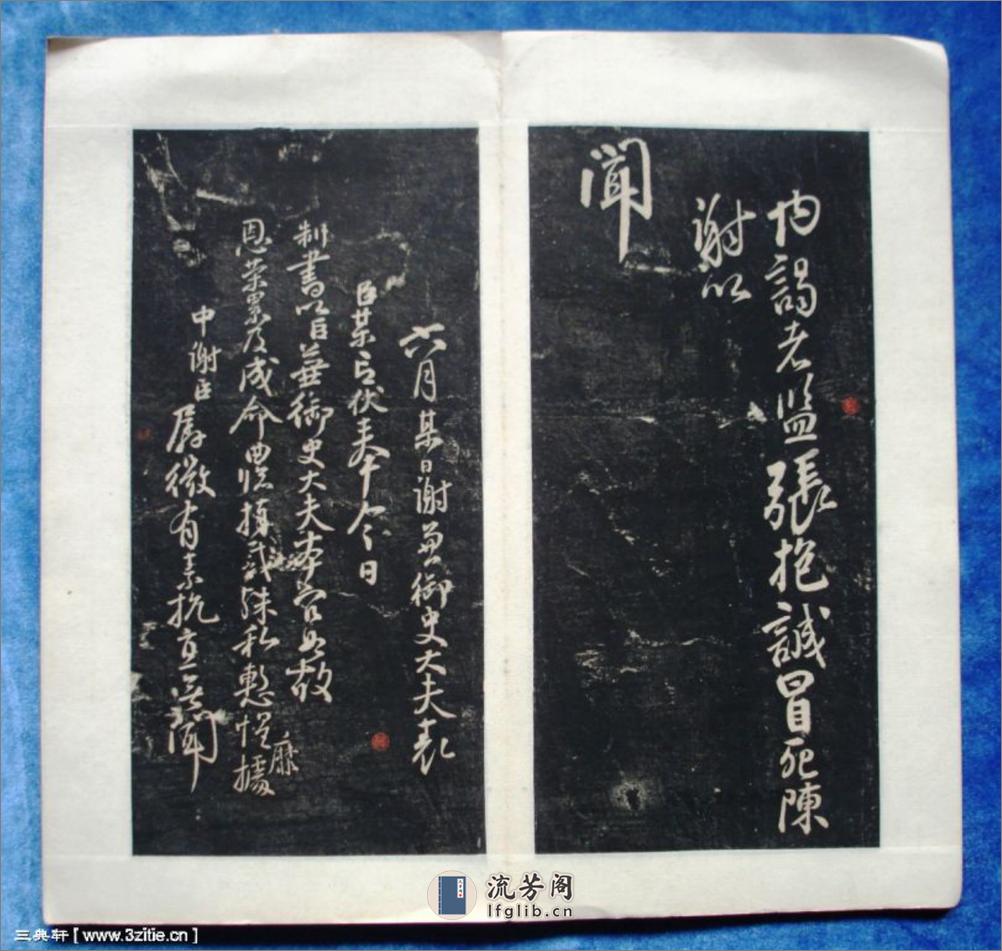 内謁者監張抱誠冒死陳
謝以
聞
六月某日謝兼御史大夫表
臣某言伏奉今日
制書以臣兼御史大夫本官如故
恩榮累及成命曲臨捧戴殊私慙惶靡據
中謝臣孱微有素抗直無聞
流芳阁
lfglib.cn
三典轩[www.3zitie.cn]